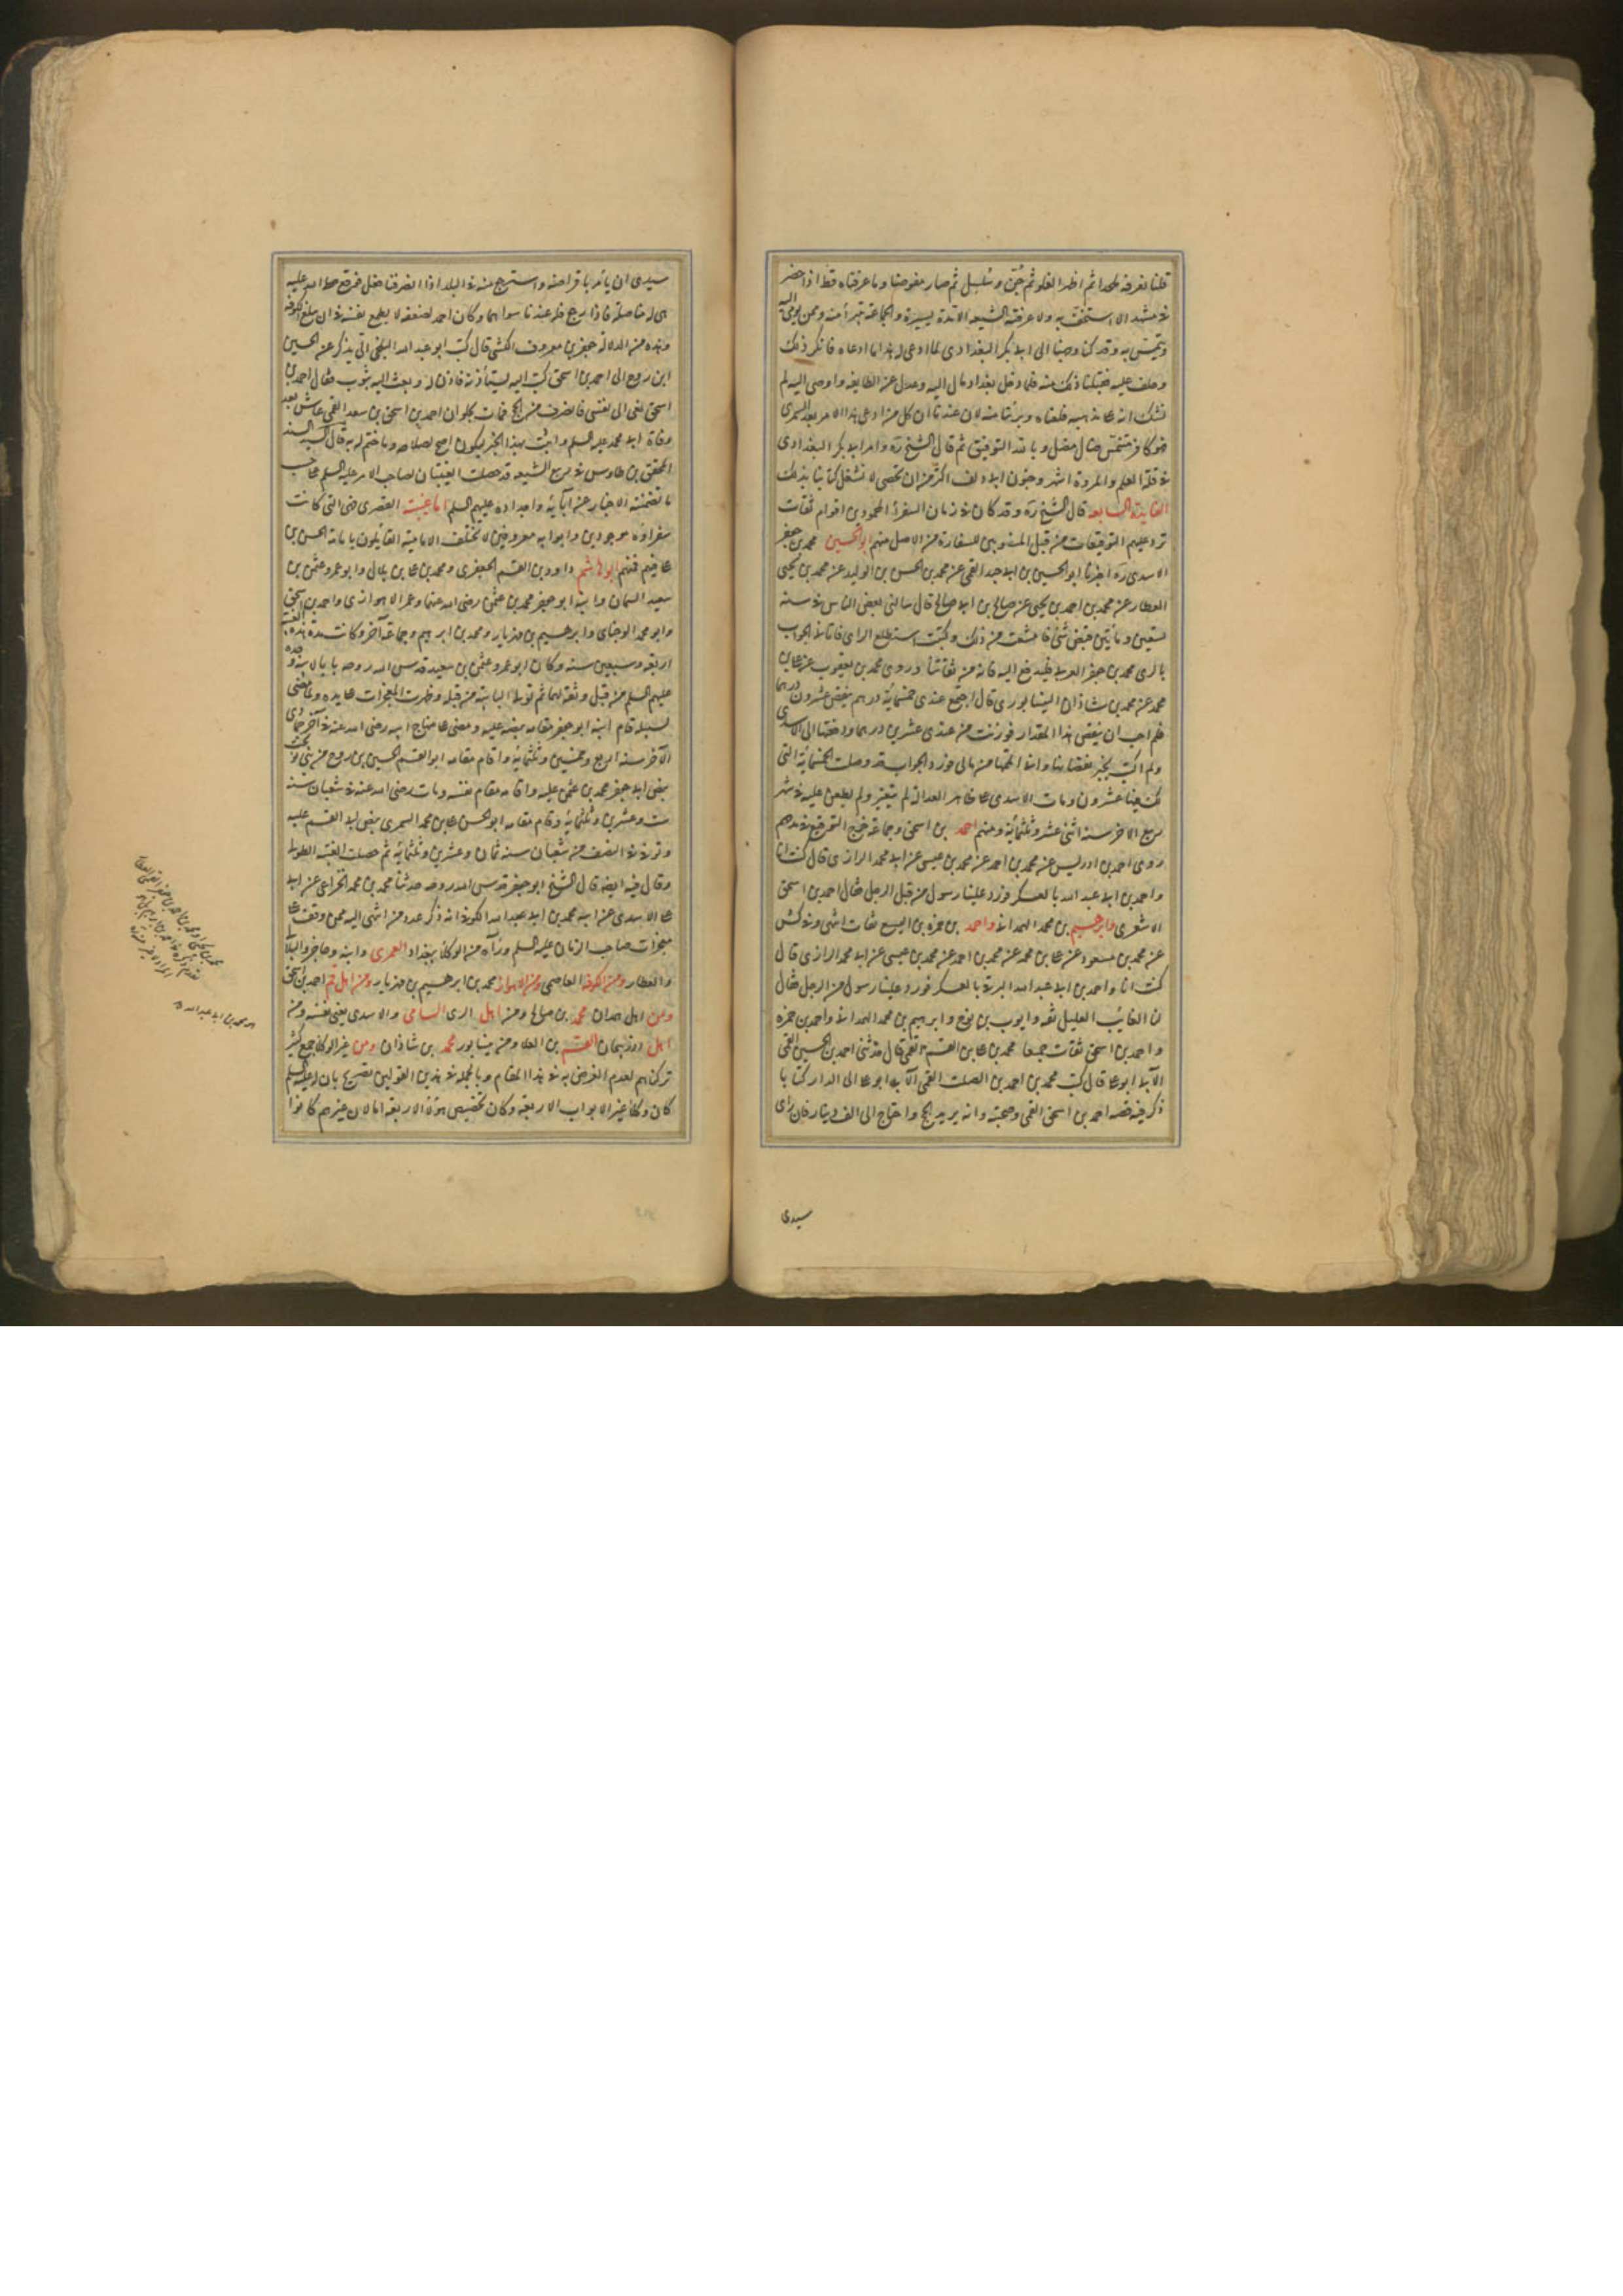 كلنا نعرفه ملحدا ثم اظهر الغلو ثم جن وسلسل ثم صار مفوضا وما عرفناه قط اذا حضر
في مشهد الا استخف به ولا عرفته الشيعة الا مدة يسيرة والجماعة تتبرأ منه وممن يومي اليه
وينمس به وقد كنا وجهنا الى ابي بكر البغدادي لما ادعى له هذا ما ادعاه فانكر ذلك
وحلف عليه فقبلنا ذلك منه فلما دخل بغداد مال اليه وعدل عن الطايفة واوصى اليه لم
نشك انه على مذهبه فلعناه وبرئنا منه لان عندنا ان كل من ادعى هذا الامر بعد السمري
فهو كافر منمس ضال مضل وبالله التوفيق ثم قال الشيخ ره وامر ابي بكر البغدادي
في قلة العلم والمروة اشهر وجنون ابي دلف اكثر من ان تحصى لا نشغل كتابنا بذلك
الفايدة السابعة قال الشيخ ره وقد كان في زمان السفراء المحمودين اقوام ثقات
ترد عليهم التوقيعات من قبل المنصوبين للسفارة من الاصل منهم ابو الحسين محمد بن جعفر
الاسدي ره اخبرنا ابو الحسين بن ابي جيد القمي عن محمد بن الحسن بن الوليد عن محمد بن يحيى
العطار عن محمد بن احمد بن يحيى عن صالح بن ابي صالح قال سالني بعض الناس في سنة
تسعين ومأتين قبض شئ فامتنعت من ذلك وكتبت استطلع الراي فاتاني الجواب
بالري محمد بن جعفر العربي فليدفع اليه فانه من ثقاتنا وروى محمد بن يعقوب عن علي بن
محمد عن محمد بن شاذان النيشابوري قال اجتمع عندي خمسمائة درهم ينقص عشرون درهما
فلم احب ان ينقص هذا المقدار فوزنت من عندي عشرين درهما ودفعتها الى الاسدي
ولم اكتب بخبر نقصانها وانى اتممتها من مالي فورد الجواب قد وصلت الخمسمائة التي
لك فيها عشرون ومات الاسدي على ظاهر العدالة لم يتغير ولم يطعن عليه في شهر
ربيع الاخر سنة اثني عشر وثلثمائة ومنهم احمد بن اسحق وجماعة خرج التوقيع في مدحهم
روى احمد بن ادريس عن محمد بن احمد عن محمد بن عيسى عن ابي محمد الرازي قال كنت انا
واحمد بن ابي عبد الله بالعسكر فورد علينا رسول من قبل الرجل فقال احمد بن اسحق
الاشعري وابرهيم بن محمد الهمداني واحمد بن حمزة بن اليسع ثقات انتهى وفي كش
عن محمد بن مسعود عن علي بن محمد عن محمد بن احمد عن محمد بن عيسى عن ابي محمد الرازي قال
كنت انا واحمد بن ابي عبد الله البرقي بالعسكر فورد علينا رسول من الرجل فقال
لنا الغائب العليل ثقة وايوب بن نوح وابرهيم بن محمد الهمداني واحمد بن حمزة
واحمد بن اسحق ثقات جميعا محمد بن علي بن القسم القمي قال حدثني احمد بن الحسين القمي
الآبي ابو علي قال كتب محمد بن احمد بن الصلت القمي الآبي ابو علي الى الدار كتابا
ذكر فيه قصة احمد بن اسحق القمي وصحبته وانه يريد الحج واحتاج الى الف دينار فان راى
سيدي
سيدي ان يأمر باقراضه واسترجع منه في البلد اذا انصرفنا فعل فوقع صلى الله عليه
هي له منا صلة فاذا رجع فله عندنا سواها وكان احمد لضعفه لا يطمع نفسه في ان يبلغ الكوفة
وهذه من الدلالة جعفر بن معروف الكشي قال كتب ابو عبد الله البلخي الي يذكر عن الحسين
ابن روح الى احمد بن اسحق كتب اليه يستأذنه فاذن له وبعث اليه بثوب فقال احمد بن
اسحق نعى الى نفسي فانصرف من الحج فمات بحلوان احمد بن اسحق بن سعد القمي عاش بعد
وفاة ابي محمد عليه السلم واثبت بهذا الخبر ليكون اصح لصلاحه وما ختم له به قال السيد السند
المحقق بن طاوس في ربيع الشيعة قد حصلت الغيبتان لصاحب الامر عليه السلم على حسب
ما تضمنته الاخبار عن آبائه واجداده عليهم السلم اما غيبته القصرى فهي التي كانت
سفراؤه موجودين وابوابه معروفين لا تختلف الامامية القايلون بامامة الحسن بن
علي فيهم فمنهم ابو هاشم داود بن القسم الجعفري ومحمد بن علي بن بلال وابو عمرو عثمن بن
سعيد السمان وابنه ابو جعفر محمد بن عثمن رضي الله عنهما وعمر الاهوازي واحمد بن اسحق
وابو محمد الوجناي وابرهيم بن مهزيار ومحمد بن ابرهيم وجماعة آخر وكانت مدة هذه الغيبة
اربعة وسبعين سنة وكان ابو عمرو عثمن بن سعيد قدس الله روحه بابا لابيه وجده
عليهم السلم من قبل وثقة لهما ثم تولى البابية من قبله وظهرت المعجزات على يده ولما مضى
لسبيله قام ابنه ابو جعفر مقامه بنصه عليه ومضى على منهاج ابيه رضي الله عنه في آخر جمادى
الآخر سنة اربع وخمسين وثلثمائة واقام مقامه ابو القسم الحسين بن روح من بني نوبخت
بنص ابي جعفر محمد بن عثمن عليه واقامه مقام نفسه ومات رضي الله عنه في شعبان سنة
ست وعشرين وثلثمائة وقام مقامه ابو الحسن علي بن محمد السمري بنص ابي القسم عليه
وتوفي في النصف من شعبان سنة ثمان وعشرين وثلثمائة ثم حصلت الغيبة الطولى
وقال فيه ايضا قال الشيخ ابو جعفر قدس الله روحه حدثنا محمد بن محمد الخزاعي عن ابي
علي الاسدي عن ابيه محمد بن ابي عبد الله الكوفي انه ذكر عدد من انتهى اليه ممن وقف على
معجزات صاحب الزمان عليه السلم ورآه من الوكلاء ببغداد العمري وابنه وحاجز والبلالي
والعطار ومن الكوفة العاصمي ومن الاهواز محمد بن ابرهيم بن مهزيار ومن اهل قم احمد بن اسحق
ومن اهل همدان محمد بن صالح ومن اهل الري السامي والاسدي يعني نفسه ومن
اهل اذربيجان القسم بن العلا ومن نيشابور محمد بن شاذان ومن غير الوكلاء جمع كثير
تركناهم لعدم الغرض به في هذا المقام وبالجملة في هذين القولين تصريح بان له عليه السلم
كان وكلاء غير الابواب الاربعة وكان تخصيص هؤلاء الاربعة اما لان غيرهم كانوا